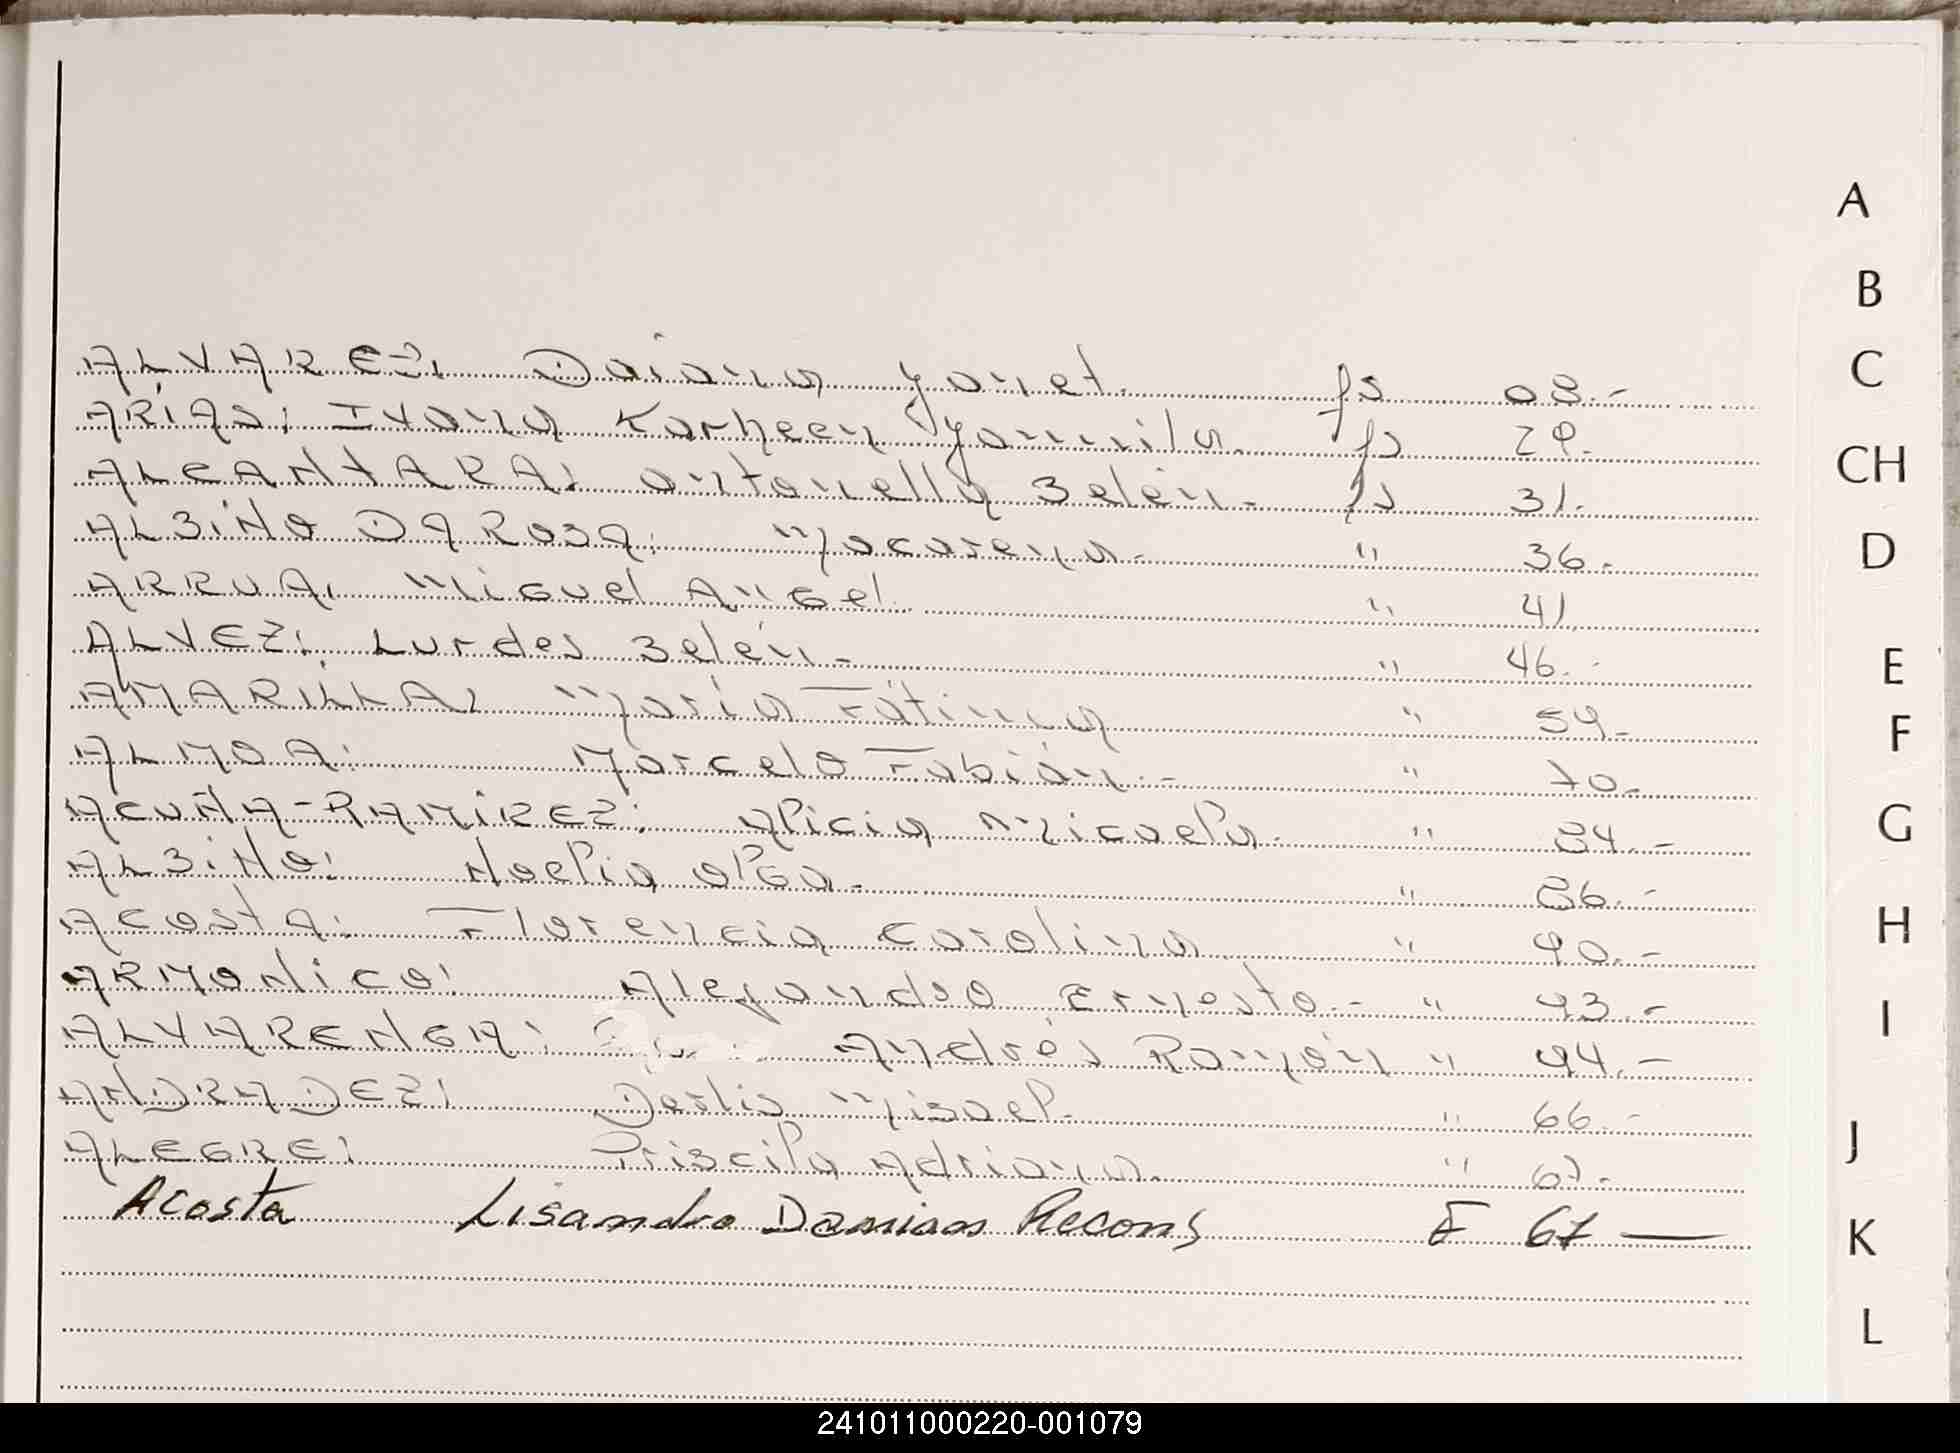 ALVAREZ, Daiana Yanet. fs 08.-
ARIAS, Ivana Karheen Yammila. fs 29.
ALCANTARA, Antonella Belén. fs 31.
ALBINO DAROSA, Macarena. " 36.
ARRUA, Miguel Angel. " 41.
ALVEZ, Lurdes Belén. " 46.
AMARILLA, María Fátima " 54.-
ALMOA: Marcelo Fabián.- " 70.-
ACUÑA-RAMIREZ: Alicia Micaela. " 84.-
ALBINO: Noelia Olga. " 86.-
ACOSTA: Florencia Carolina " 90.-
ARMONICO: Alejandro Ernesto.- " 93.-
ALVARENGA: Andrés Ramón " 94.-
ANDRADEZ: Derlis Misael. " 66.-
ALEGRE: Priscila Adriana. " 67.-
Acosta Lisandro Damian Recons F 67 —
A
B
C
CH
D
E
F
G
H
I
J
K
L
241011000220-001079